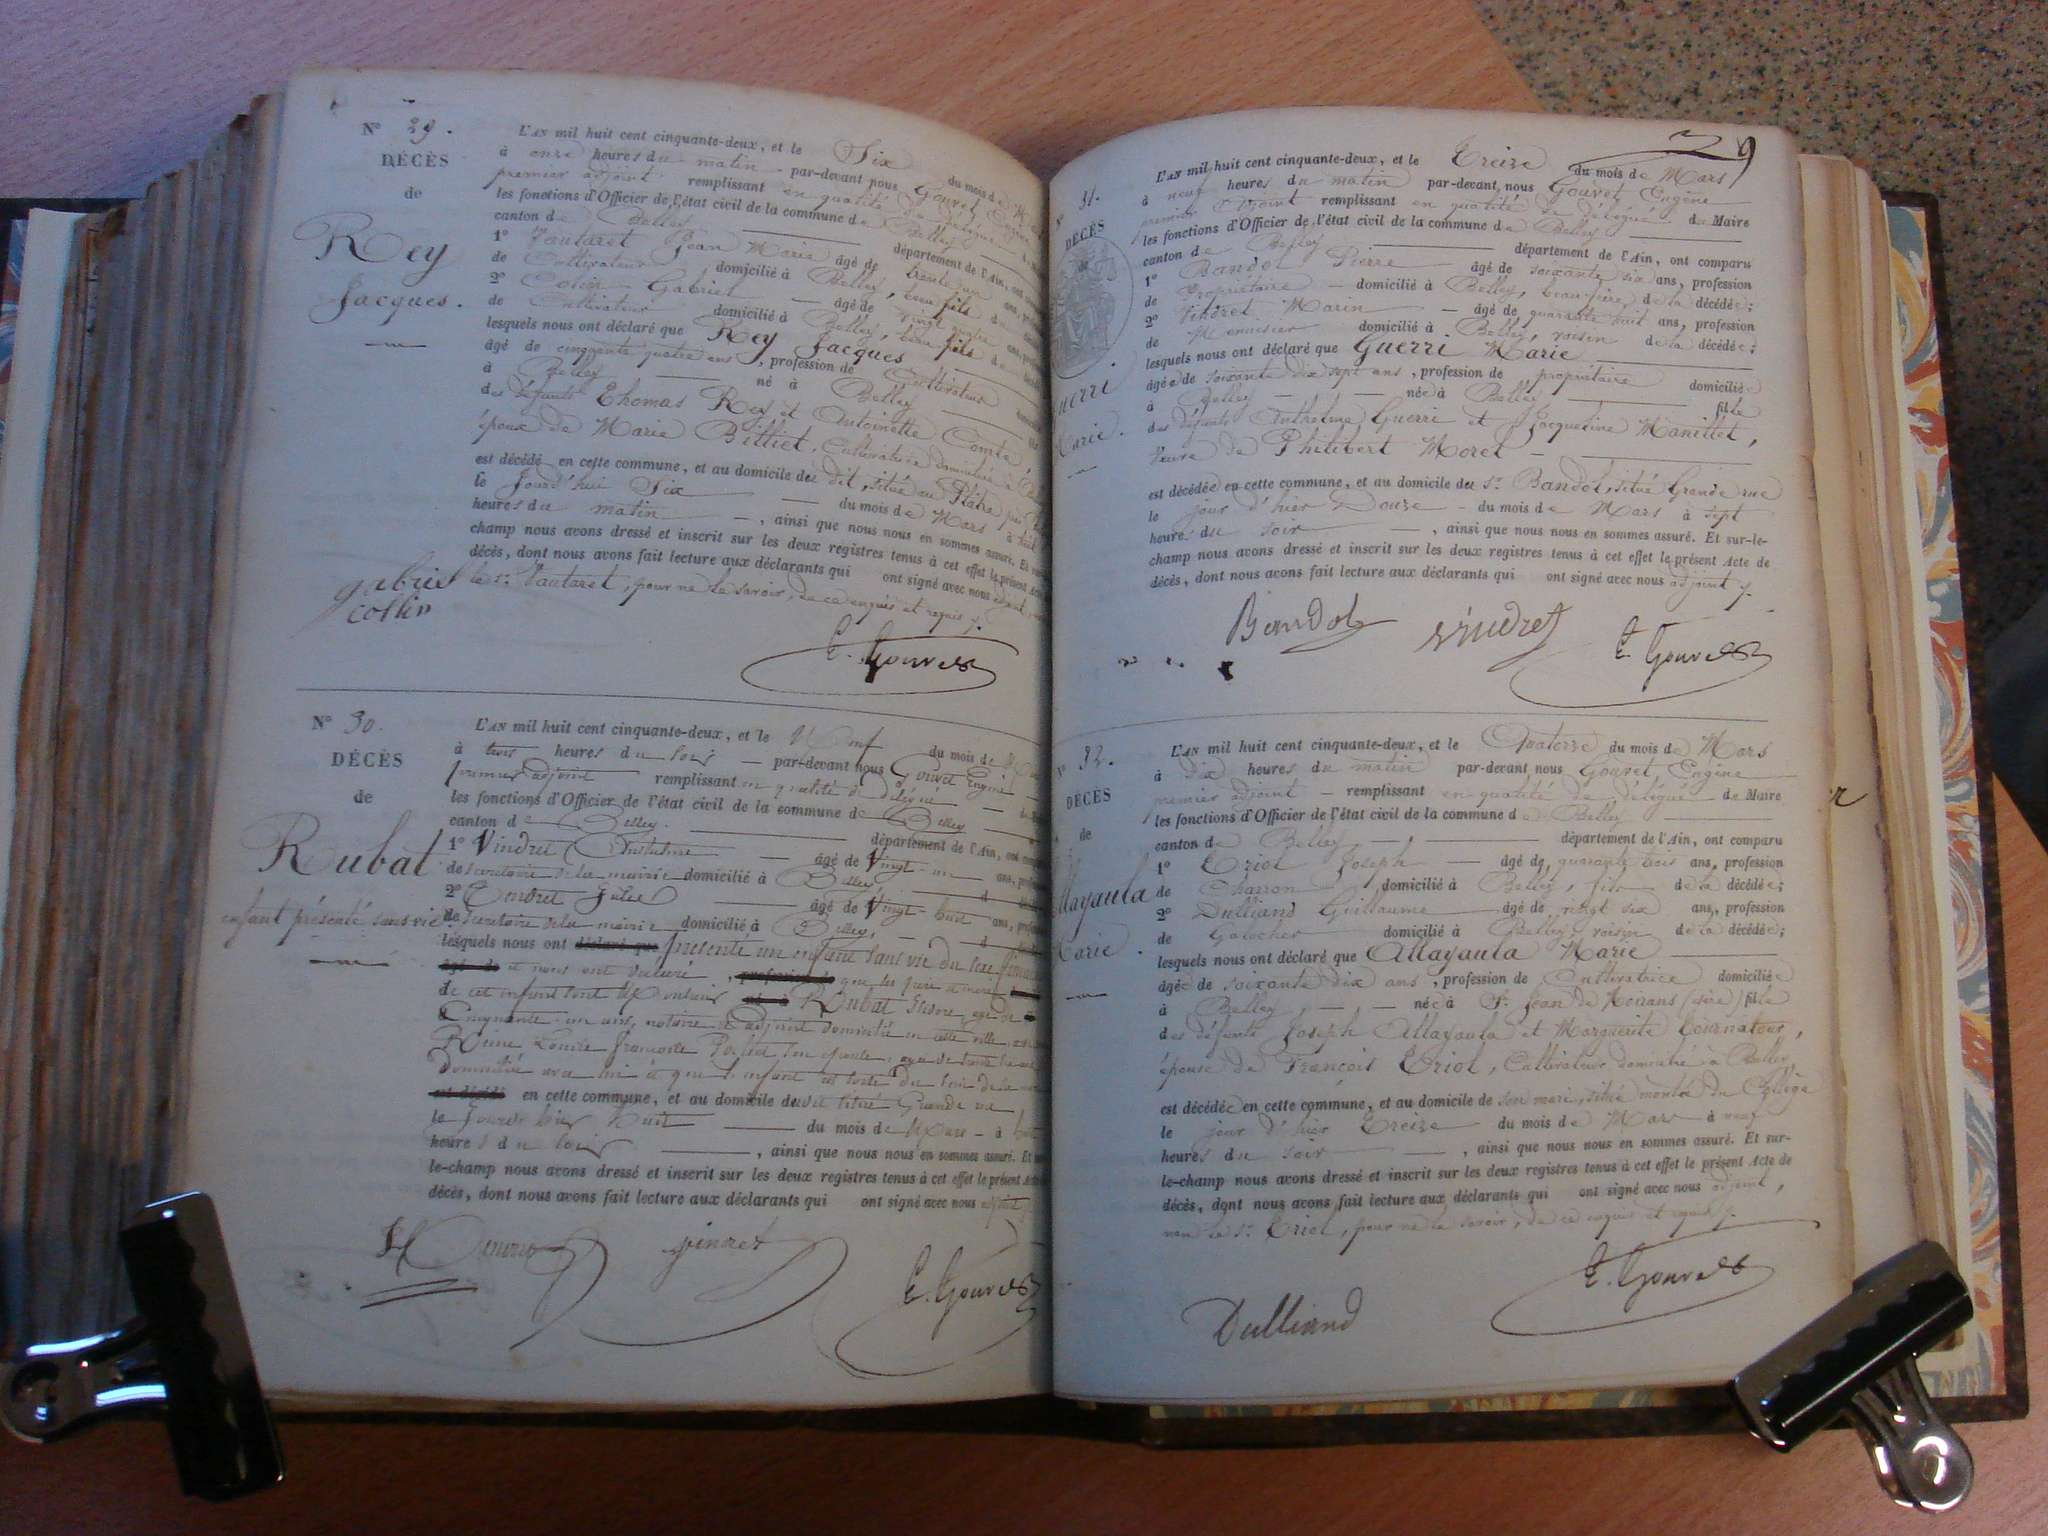 N° 29.
DÉCÈS
de
Rey
Jacques.
L'AN mil huit cent cinquante-deux, et le Six du mois de
à onze heures du matin par-devant nous Gouvet
premier adjoint remplissant en qualité de délégué
les fonctions d'Officier de l'état civil de la commune de Belley
canton de Belley département de l'Ain, ont
1° Vautaret Jean Marie âgé de trente un ans,
de Cultivateur domicilié à Belley, beau fils
2° Colin Gabriel âgé de vingt quatre ans,
de Cultivateur domicilié à Belley, beau fils de
lesquels nous ont déclaré que Rey Jacques
âgé de cinquante quatre ans, profession de Cultivateur
à Belley né à Belley
des défunts Thomas Rey et Antoinette Comte,
époux de Marie Billiet, Cultivatrice domiciliée à
est décédé en cette commune, et au domicile du dit, situé au
le Jourd'hui Six du mois de Mars à
heures du matin, ainsi que nous nous en sommes assuré. Et
champ nous avons dressé et inscrit sur les deux registres tenus à cet effet le présent Acte
décès, dont nous avons fait lecture aux déclarants qui ont signé avec nous adjoint
le Sr. Vautaret, pour ne le savoir, de ce enquis et requis
gabriel
collin
E. Gouvet
N° 30.
DÉCÈS
de
Rubat
enfant présenté sans vie
L'AN mil huit cent cinquante-deux, et le Neuf du mois de
à trois heures du soir par-devant nous Gouvet Eugène
premier adjoint remplissant en qualité de délégué
les fonctions d'Officier de l'état civil de la commune de Belley
canton de Belley département de l'Ain, ont
1° Vindret Anthelme âgé de Vingt-un ans,
de secrétaire de la mairie domicilié à Belley,
2° Jules âgé de Vingt-huit ans,
de secrétaire de la mairie domicilié à Belley,
lesquels nous ont déclaré que présenté un enfant sans vie du sexe
âgé de et nous ont déclaré, profession de que les père et mère
de cet enfant sont Monsieur né à Rubat
Cinquante-un ans, notaire et adjoint domicilié en cette ville,
Reine Louise Françoise son épouse,
domiciliée avec lui et que l'enfant est sorti du sein de la
est décédé en cette commune, et au domicile du situé Grande rue
le Jour d'hier Huit du mois de Mars à
heures du soir, ainsi que nous nous en sommes assuré. Et
le-champ nous avons dressé et inscrit sur les deux registres tenus à cet effet le présent Acte
décès, dont nous avons fait lecture aux déclarants qui ont signé avec nous adjoint
vindret
E. Gouvet
9
31.
DÉCÈS
uerri
arie.
L'AN mil huit cent cinquante-deux, et le Treize du mois de Mars
à neuf heures du matin par-devant nous Gouvet Eugène
premier adjoint remplissant en qualité de délégué de Maire
les fonctions d'Officier de l'état civil de la commune de Belley
canton de Belley département de l'Ain, ont comparu
1° Bandol Pierre âgé de soixante six ans, profession
de Propriétaire domicilié à Belley, beau-frère de la décédée;
2° Vindret Marin âgé de quarante huit ans, profession
de Menuisier domicilié à Belley, voisin de la décédée;
lesquels nous ont déclaré que Guerri Marie
âgée de soixante dix sept ans, profession de propriétaire domiciliée
à Belley née à Belley fille
des défunts Anthelme Guerri et Jacqueline Manillet,
veuve de Philibert Moret
est décédée en cette commune, et au domicile du Sr. Bandol, situé Grande rue
le jour d'hier Douze du mois de Mars à sept
heures du soir, ainsi que nous nous en sommes assuré. Et sur-le-
champ nous avons dressé et inscrit sur les deux registres tenus à cet effet le présent Acte de
décès, dont nous avons fait lecture aux déclarants qui ont signé avec nous adjoint
Bandol vindret E. Gouvet
32.
DÉCÈS
de
llayaula
arie.
L'AN mil huit cent cinquante-deux, et le Quatorze du mois de Mars
à dix heures du matin par-devant nous Gouvet, Eugène
premier adjoint remplissant en qualité de délégué de Maire
les fonctions d'Officier de l'état civil de la commune de Belley
canton de Belley département de l'Ain, ont comparu
1° Triol Joseph âgé de quarante trois ans, profession
de Charron domicilié à Belley, fils de la décédée;
2° Dulliand Guillaume âgé de vingt six ans, profession
de Galocher domicilié à Belley, voisin de la décédée;
lesquels nous ont déclaré que Allayaula Marie
âgée de soixante dix ans, profession de Cultivatrice domiciliée
à Belley, née à St. Jean de Moirans (isère) fille
des défunts Joseph Allayaula et Marguerite Tournatour,
épouse de François Triol, Cultivateur domicilié à Belley,
est décédée en cette commune, et au domicile de son mari, situé montée du Collège
le jour d'hier Treize du mois de Mars à neuf
heures du soir, ainsi que nous nous en sommes assuré. Et sur-
le-champ nous avons dressé et inscrit sur les deux registres tenus à cet effet le présent Acte de
décès, dont nous avons fait lecture aux déclarants qui ont signé avec nous adjoint,
non le Sr. Triol, pour ne le savoir, de ce enquis et requis
E. Gouvet
Dulliand